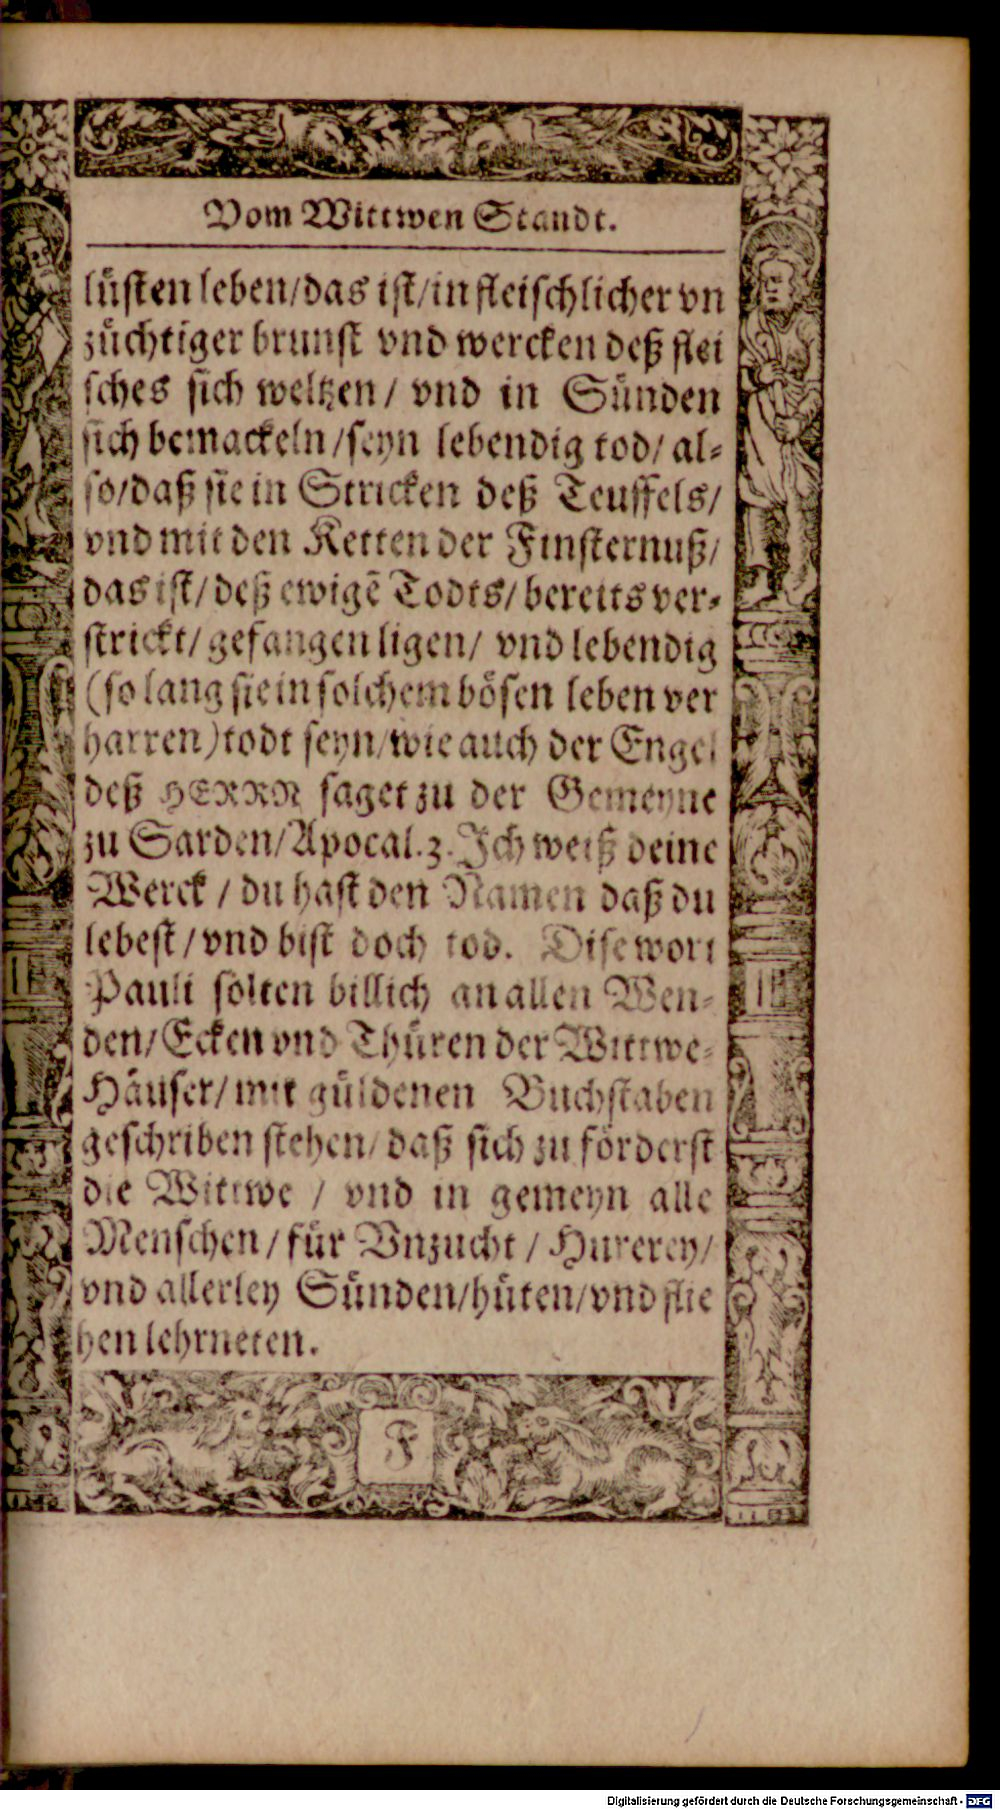 Vom Wittwen Standt.
lüsten leben/das ist/in fleischlicher vn
züchtiger brunst vnd wercken deß flei
sches sich weltzen/ vnd in Sünden
sich bemackeln/seyn lebendig tod/ al-
so/daß sie in Stricken deß Teuffels/
vnd mit den Ketten der Finsternuß/
das ist/ deß ewigē Todts/ bereits ver-
strickt/ gefangen ligen/ vnd lebendig
(so lang sie in solchem bösen leben ver
harren) todt seyn/wie auch der Engel
deß HERRN saget zu der Gemeyne
zu Sarden/Apocal.3. Ich weiß deine
Werck / du hast den Namen daß du
lebest/ vnd bist doch tod. Dise wort
Pauli solten billich an allen Wen-
den/Ecken vnd Thüren der Wittwe-
Häuser/ mit güldenen Buchstaben
geschriben stehen/ daß sich zu förderst
die Wittwe / vnd in gemeyn alle
Menschen/ für Vnzucht / Hurerey/
vnd allerley Sünden/hüten/vnd flie
hen lehrneten.
F
Digitalisierung gefördert durch die Deutsche Forschungsgemeinschaft - DFG